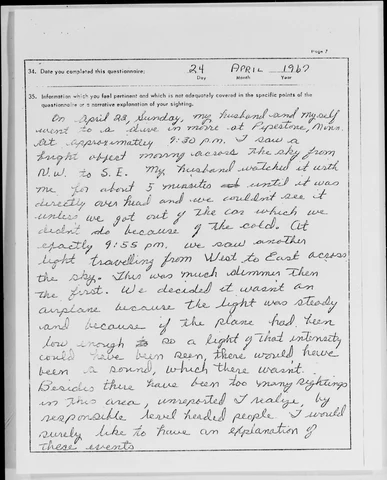 Page 7
34. Date you completed this questionnaire: 24 APRIL 1967
Day Month Year
35. Information which you feel pertinent and which is not adequately covered in the specific points of the
questionnaire or a narrative explanation of your sighting.
On April 23, Sunday, my husband and myself
went to a drive in movie at Pipestone, Minn.
At approximatley 9:30 p.m. I saw a
bright object moving across the sky from
N.W. to S.E. My, husband watched it with
me for about 5 minutes until it was
directly over head and we couldn't see it
unless we got out of the car which we
didn't do because of the cold. At
exactly 9:55 p.m. we saw another
light travelling from West to East across
the sky. This was much dimmer then
the first. We decided it wasn't an
airplane because the light was steady
and because if the plane had been
low enough to so a light of that intensity
could have been seen, there would have
been a sound, which there wasn't.
Besides there have been too many sightings
in this area, unreported I realize, by
responsible level headed people. I would
surely like to have an explanation of
these events